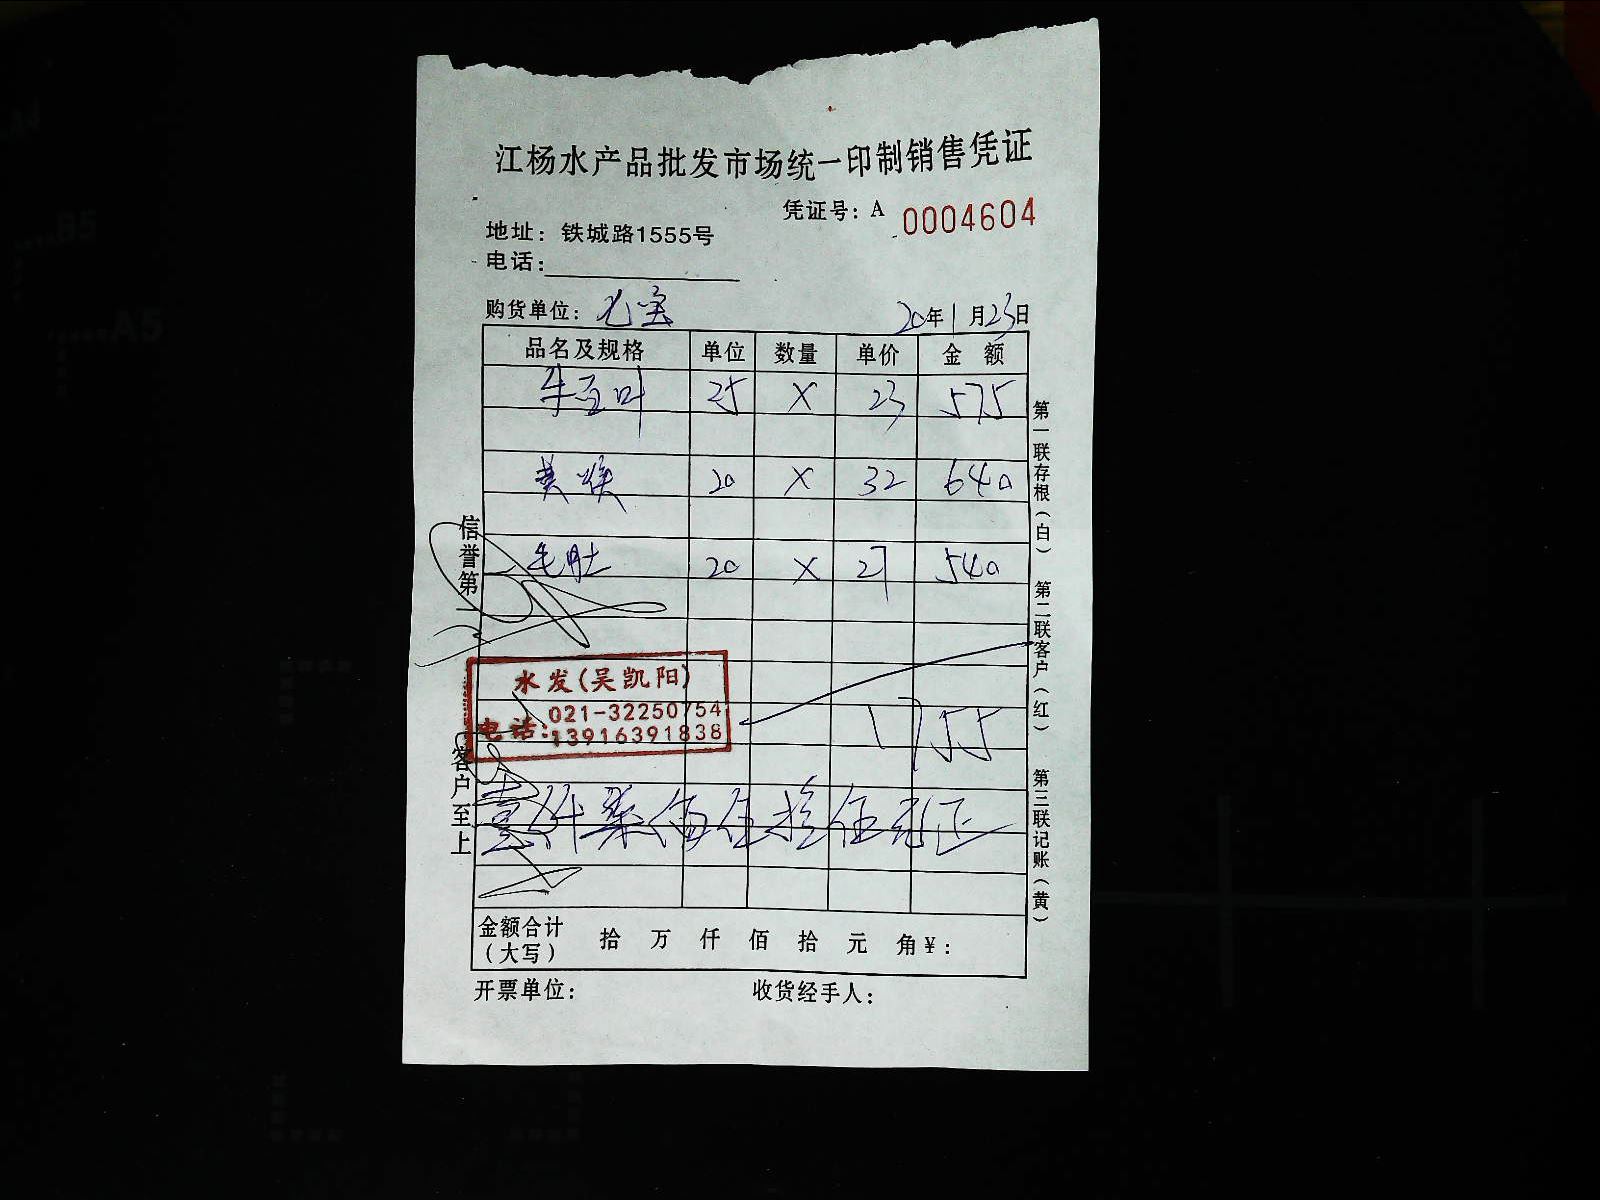 江杨水产品批发市场统一印制销售凭证
凭证号：A 0004604
地址：铁城路1555号
电话：
购货单位：七宝 20年1月23日
品名及规格 单位 数量 单价 金额
牛百叶 25 X 23 575
黄喉 20 X 32 640
毛肚 20 X 27 540
水发(吴凯阳)
电话：021-32250754
13916391838
1755
壹仟柒佰伍拾伍元正
金额合计（大写） 拾 万 仟 佰 拾 元 角 ¥：
开票单位： 收货经手人：
信誉第一
客户至上
第一联存根（白）
第二联客户（红）
第三联记账（黄）